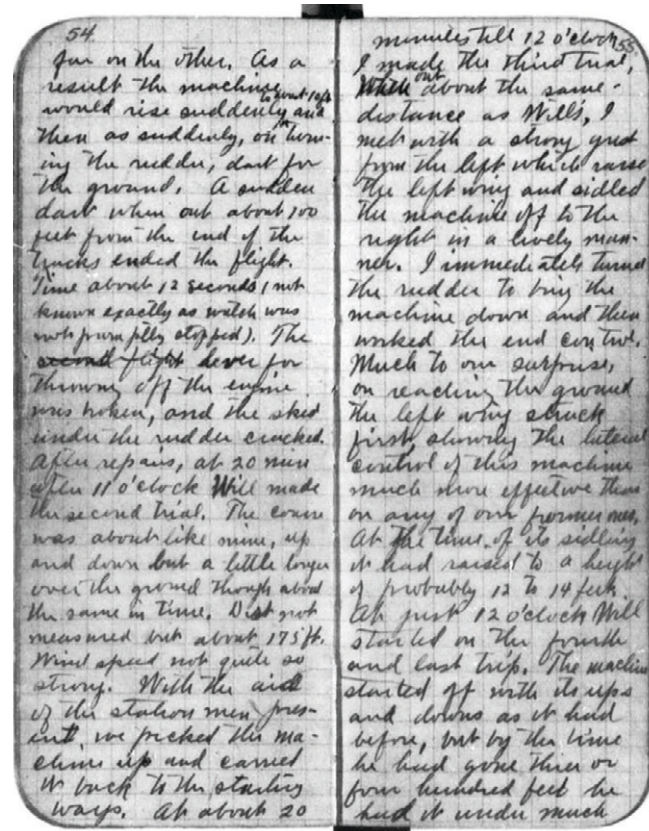 54.
far on the other. As a
result the machine
would rise suddenly to about 10 ft. and
then as suddenly, on turn-
ing the rudder, dart for
the ground. A sudden
dart when out about 100
feet from the end of the
tracks ended the flight.
Time about 12 seconds (not
known exactly as watch was
not promptly stopped). The
second flight lever for
throwing off the engine
was broken, and the skid
under the rudder cracked.
After repairs, at 20 min
after 11 o'clock Will made
the second trial. The course
was about like mine, up
and down but a little longer
over the ground though about
the same in time. Dist not
measured but about 175 ft.
Wind speed not quite so
strong. With the aid
of the station men pres-
ent, we picked the ma-
chine up and carried
it back to the starting
ways. At about 20
55.
minutes till 12 o'clock
I made the third trial,
When out about the same
distance as Will's, I
met with a strong gust
from the left which raised
the left wing and sidled
the machine off to the
right in a lively man-
ner. I immediately turned
the rudder to bring the
machine down and then
worked the end control.
Much to our surprise,
on reaching the ground
the left wing struck
first, showing the lateral
control of this machine
much more effective than
on any of our former ones.
At the time of its sidling
it had raised to a height
of probably 12 to 14 feet.
At just 12 o'clock Will
started on the fourth
and last trip. The machine
started off with its ups
and downs as it had
before, but by the time
he had gone three or
four hundred feet he
had it under much